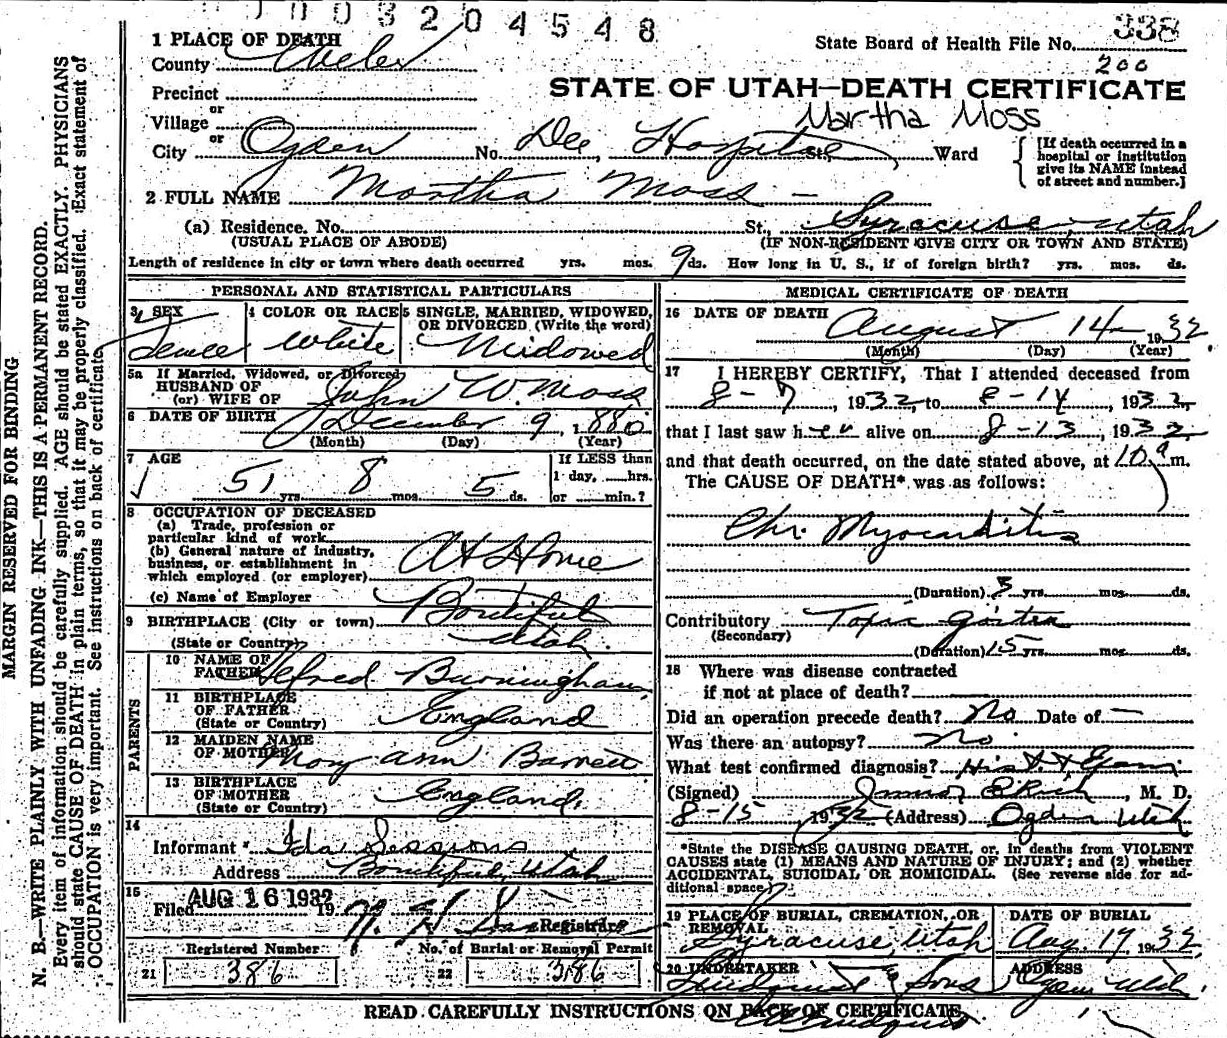 0003204548
1 PLACE OF DEATH
State Board of Health File No. 338
County Weber
200
Precinct
STATE OF UTAH—DEATH CERTIFICATE
or
Village
Martha Moss
or
City Ogden No. Dee Hospital St., Ward
[If death occurred in a
hospital or institution
give its NAME instead
of street and number.]
2 FULL NAME Martha Moss —
(a) Residence. No. St., Syracuse, Utah
(USUAL PLACE OF ABODE) (IF NON-RESIDENT GIVE CITY OR TOWN AND STATE)
Length of residence in city or town where death occurred yrs. mos. 9 ds. How long in U. S., if of foreign birth? yrs. mos. ds.
PERSONAL AND STATISTICAL PARTICULARS
3 SEX 4 COLOR OR RACE 5 SINGLE, MARRIED, WIDOWED,
OR DIVORCED (Write the word)
White Widowed
5a If Married, Widowed, or Divorced
HUSBAND OF
(or) WIFE OF John W. Moss
6 DATE OF BIRTH December 9, 1880
(Month) (Day) (Year)
7 AGE If LESS than
1 day, hrs.
51 yrs. 8 mos. 5 ds. or min.?
8 OCCUPATION OF DECEASED
(a) Trade, profession or
particular kind of work
(b) General nature of industry,
business, or establishment in
which employed (or employer)
At Home
(c) Name of Employer
9 BIRTHPLACE (City or town) Bountiful
(State or Country) Utah.
PARENTS
10 NAME OF
FATHER Alfred Burningham
11 BIRTHPLACE
OF FATHER
(State or Country) England
12 MAIDEN NAME
OF MOTHER Mary Ann Barrett
13 BIRTHPLACE
OF MOTHER
(State or Country) England.
14
Informant Ida Sessions
Address Bountiful, Utah
15
Filed AUG 16 1932 19
Registrar
Registered Number No. of Burial or Removal Permit
21 386 22 386
MEDICAL CERTIFICATE OF DEATH
16 DATE OF DEATH
August 14 1932
(Month) (Day) (Year)
17 I HEREBY CERTIFY, That I attended deceased from
8-7, 1932, to 8-14, 1932,
that I last saw her alive on 8-13, 1932
and that death occurred, on the date stated above, at 10 a m.
The CAUSE OF DEATH* was as follows:
Chr. Myocarditis
(Duration) 3 yrs. mos. ds.
Contributory Toxic goiter
(Secondary)
(Duration) 15 yrs. mos. ds.
18 Where was disease contracted
if not at place of death?
Did an operation precede death? No Date of —
Was there an autopsy? no
What test confirmed diagnosis? Hist. & Exam
(Signed) Rich, M. D.
8-15 1932 (Address) Ogden Utah
*State the DISEASE CAUSING DEATH, or, in deaths from VIOLENT
CAUSES state (1) MEANS AND NATURE OF INJURY; and (2) whether
ACCIDENTAL, SUICIDAL OR HOMICIDAL. (See reverse side for ad-
ditional space)
19 PLACE OF BURIAL, CREMATION, OR
REMOVAL
Syracuse, Utah
DATE OF BURIAL
Aug. 17 1932
20 UNDERTAKER
Lindquist & Sons
ADDRESS
Ogden Utah.
READ CAREFULLY INSTRUCTIONS ON BACK OF CERTIFICATE
MARGIN RESERVED FOR BINDING
N. B.—WRITE PLAINLY WITH UNFADING INK—THIS IS A PERMANENT RECORD.
Every item of information should be carefully supplied. AGE should be stated EXACTLY. PHYSICIANS
should state CAUSE OF DEATH in plain terms, so that it may be properly classified. Exact statement of
OCCUPATION is very important. See instructions on back of certificate.